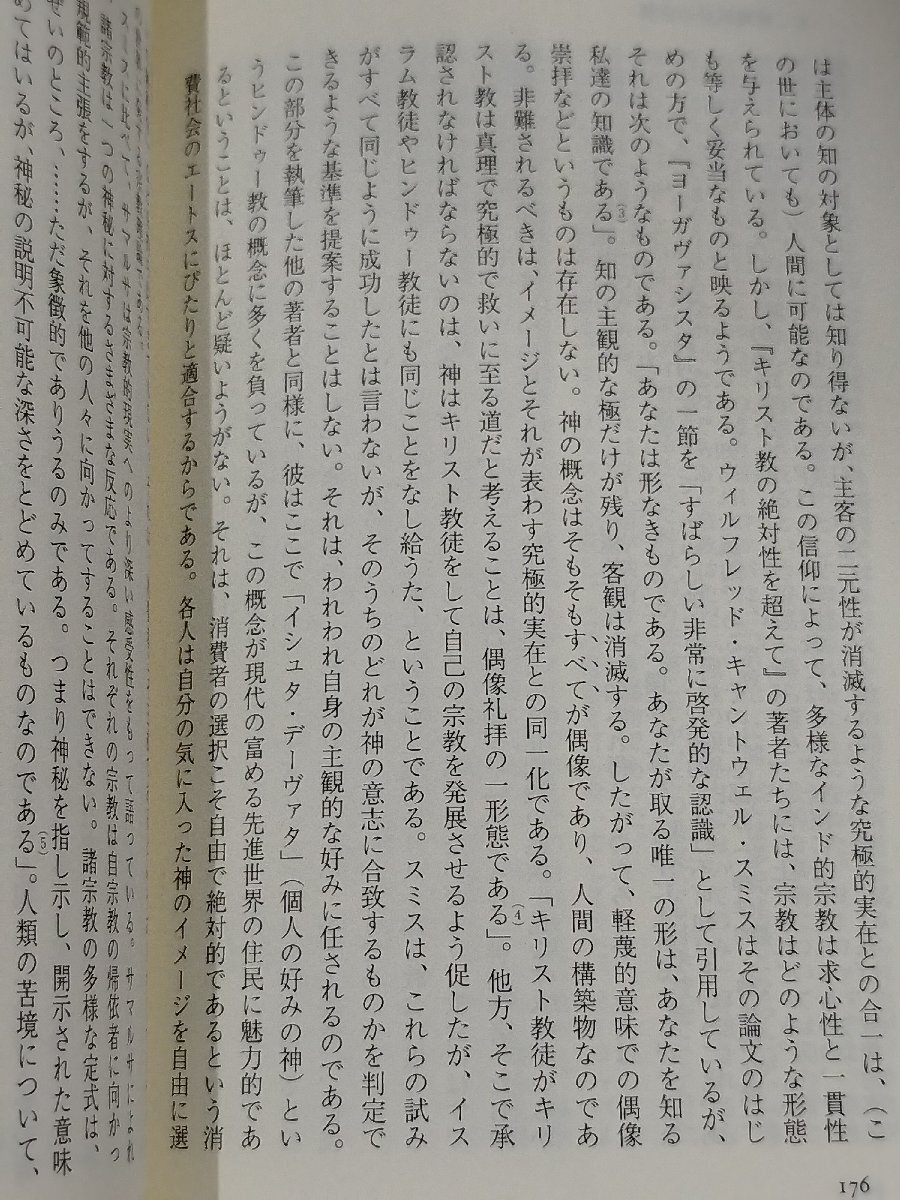 は主体の知の対象としては知り得ないが、主客の二元性が消滅するような究極的実在との合一は、（こ
の世においても）人間に可能なのである。この信仰によって、多様なインド的宗教は求心性と一貫性
を与えられている。しかし、『キリスト教の絶対性を超えて』の著者たちには、宗教はどのような形態
も等しく妥当なものと映るようである。ウィルフレッド・キャントウェル・スミスはその論文のはじ
めの方で、『ヨーガヴァシスタ』の一節を「すばらしい非常に啓発的な認識」として引用しているが、
それは次のようなものである。「あなたは形なきものである。あなたが取る唯一の形は、あなたを知る
私達の知識である(3)」。知の主観的な極だけが残り、客観は消滅する。したがって、軽蔑的意味での偶像
崇拝などというものは存在しない。神の概念はそもそもすべてが偶像であり、人間の構築物なのであ
る。非難されるべきは、イメージとそれが表わす究極的実在との同一化である。「キリスト教徒がキリ
スト教は真理で究極的で救いに至る道だと考えることは、偶像礼拝の一形態である(4)」。他方、そこで承
認されなければならないのは、神はキリスト教徒をして自己の宗教を発展させるよう促したが、イス
ラム教徒やヒンドゥー教徒にも同じことをなし給うた、ということである。スミスは、これらの試み
がすべて同じように成功したとは言わないが、そのうちのどれが神の意志に合致するものかを判定で
きるような基準を提案することはしない。それは、われわれ自身の主観的な好みに任されるのである。
この部分を執筆した他の著者と同様に、彼はここで「イシュタ・デーヴァタ」（個人の好みの神）とい
うヒンドゥー教の概念に多くを負っているが、この概念が現代の富める先進世界の住民に魅力的であ
るということは、ほとんど疑いようがない。それは、消費者の選択こそ自由で絶対的であるという消
費社会のエートスにぴたりと適合するからである。各人は自分の気に入った神のイメージを自由に選
スミスに比べて、サマルサは宗教的現実へのより深い感受性をもって語っている。サマルサによれ
諸宗教は「一つの神秘に対するさまざまな反応である。それぞれの宗教は自宗教の帰依者に向かっ
規範的主張をするが、それを他の人々に向かってすることはできない。諸宗教の多様な定式は、
せいのところ、……ただ象徴的でありうるのみである。つまり神秘を指し示し、開示された意味
めてはいるが、神秘の説明不可能な深さをとどめているものなのである(5)」。人類の苦境について、
176